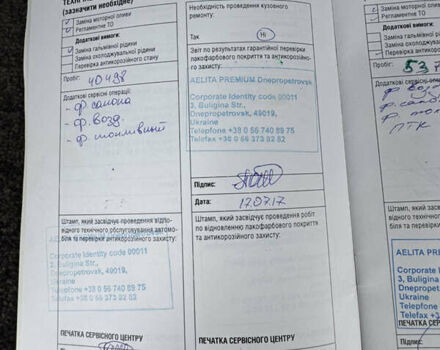 ТЕХН
(зазначити необхідне)
Заміна моторної оливи
Регламентне ТО
Додаткові вимоги:
Заміна гальмівної рідини
Заміна охолоджувальної рідини
Перевірка антикорозійного стану
Пробіг: 40498
Додаткові сервісні операції:
- ф. салона
- ф. возд.
- ф. топливный
Штамп, який засвідчує проведення відпо-
відного технічного обслуговування автомо-
біля та перевірки антикорозійного захисту:
AELITA PREMIUM
Corporate Identity code 00011
3, Buligina Str.,
Dnepropetrovsk, 49019,
Ukraine
Telephone +38 0 56 740 89 75
Telefax +38 0 56 373 82 82
ПЕЧАТКА СЕРВІСНОГО ЦЕНТРУ
Необхідність проведення кузовного
ремонту:
Так
Ні
Звіт по результатах гарантійної перевірки
лакофарбового покриття та антикорозійно-
го захисту:
AELITA PREMIUM Dnepropetrovsk
Corporate Identity code 00011
3, Buligina Str.,
Dnepropetrovsk, 49019,
Ukraine
Telephone +38 0 56 740 89 75
Telefax +38 0 56 373 82 82
Підпис:
Дата: 17.07.17
Штамп, який засвідчує проведення робіт
по відновленню лакофарбового покриття
та антикорозійного захисту:
ПЕЧАТКА СЕРВІСНОГО ЦЕНТРУ
Заміна моторної
Регламентне ТО
Додаткові вимоги:
Заміна гальмівної
Заміна охолоджув
Перевірка антикор
Пробіг: 537
Додаткові сервісні
ф. возд
ф. сало
ф. топ
ПТК
Штамп, який засвід
відного технічного
біля та перевірки ан
AELITA PREMIUM
Corporate Identity
3, Buligina Str.,
Dnepropetrovsk
Ukraine
Telephone +38 0
Telefax +38 0 56
ПЕЧАТКА СЕРВІС